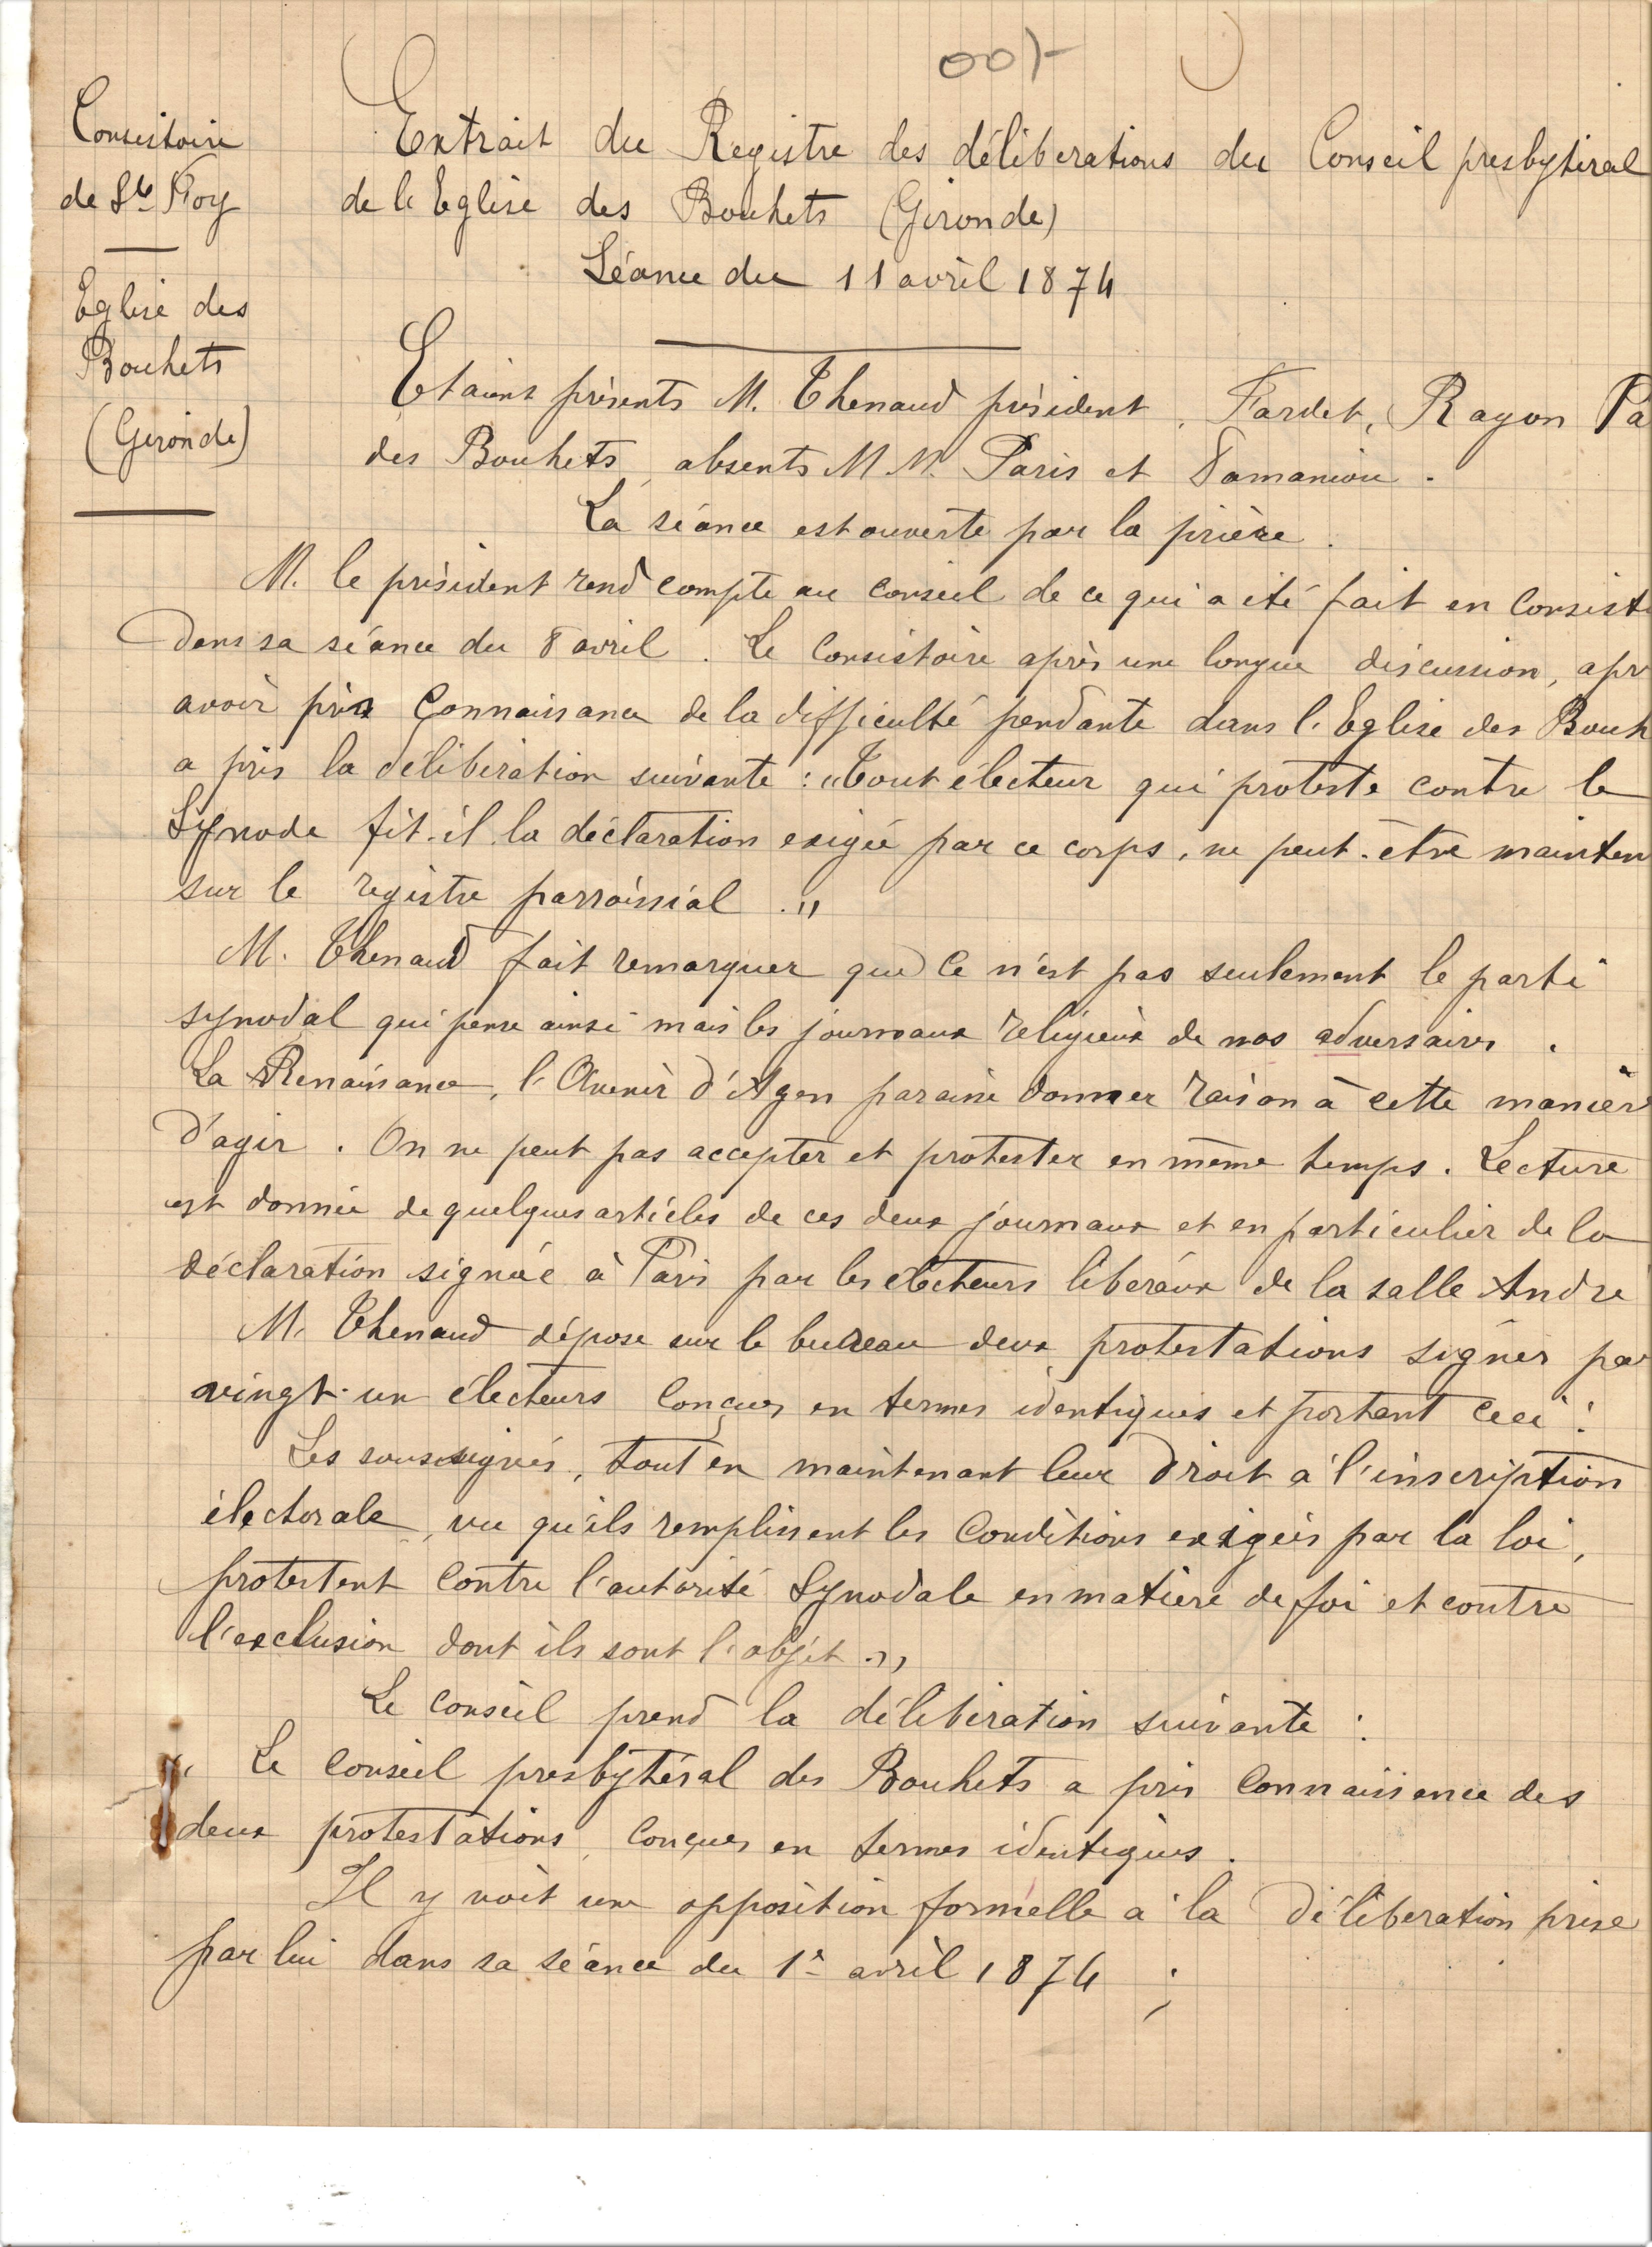 Consistoire
de Ste Foy
Eglise des
Bouhets
(Gironde)
Extrait du Registre des délibérations du Conseil presbytéral
de l'Eglise des Bouhets (Gironde)
Séance du 11 avril 1874
Etaient présents M. Thenaud président, Fardet, Rayon Pa
des Bouhets, absents M M. Paris et
La séance est ouverte par la prière.
M. le président rend compte au conseil de ce qui a été fait en Consist
dans sa séance du 8 avril. Le Consistoire après une longue discussion, apr
avoir pris Connaissance de la difficulté pendante dans l'Eglise des Bouh
a pris la délibération suivante : "Tout électeur qui proteste contre le
Synode fit-il la déclaration exigée par ce corps, ne peut-être mainten
sur le registre parroissial."
M. Thenaud fait remarquer que ce n'est pas seulement le parti
synodal qui pense ainsi mais les journaux religieux de nos adversaires.
La Renaissance, l'Avenir d'Agen paraine donner raison à cette manièr
d'agir. On ne peut pas accepter et protester en même temps. Lecture
est donnée de quelques articles de ces deux journaux et en particulier de la
déclaration signée à Paris par les électeurs libéraux de la salle André
M. Thenaud dépose sur le bureau deux protestations signés par
vingt-un électeurs Conçues en termes identiques et portant ceci :
Les soussignés, tout en maintenant leur droit à l'inscription
électorale, vu qu'ils remplissent les Conditions exigées par la loi,
protestent Contre l'autorité Synodale en matière de foi et contre
l'exclusion dont ils sont l'objet."
Le conseil prend la délibération suivante :
" Le Conseil presbytéral des Bouhets a pris Connaissance des
deux protestations, Conçues en termes identiques.
Il y voit une opposition formelle à la délibération prise
par lui dans sa séance du 1r avril 1874 ;